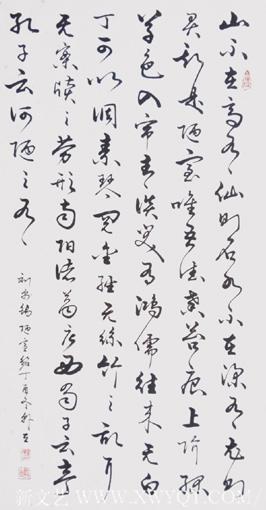 山不在高有仙则名水不在深有龙则
灵斯是陋室唯吾德馨苔痕上阶绿
草色入帘青谈笑有鸿儒往来无白
丁可以调素琴阅金经无丝竹之乱耳
无案牍之劳形南阳诸葛庐西蜀子云亭
孔子云何陋之有
刘禹锡陋室铭丁酉冬
新文艺